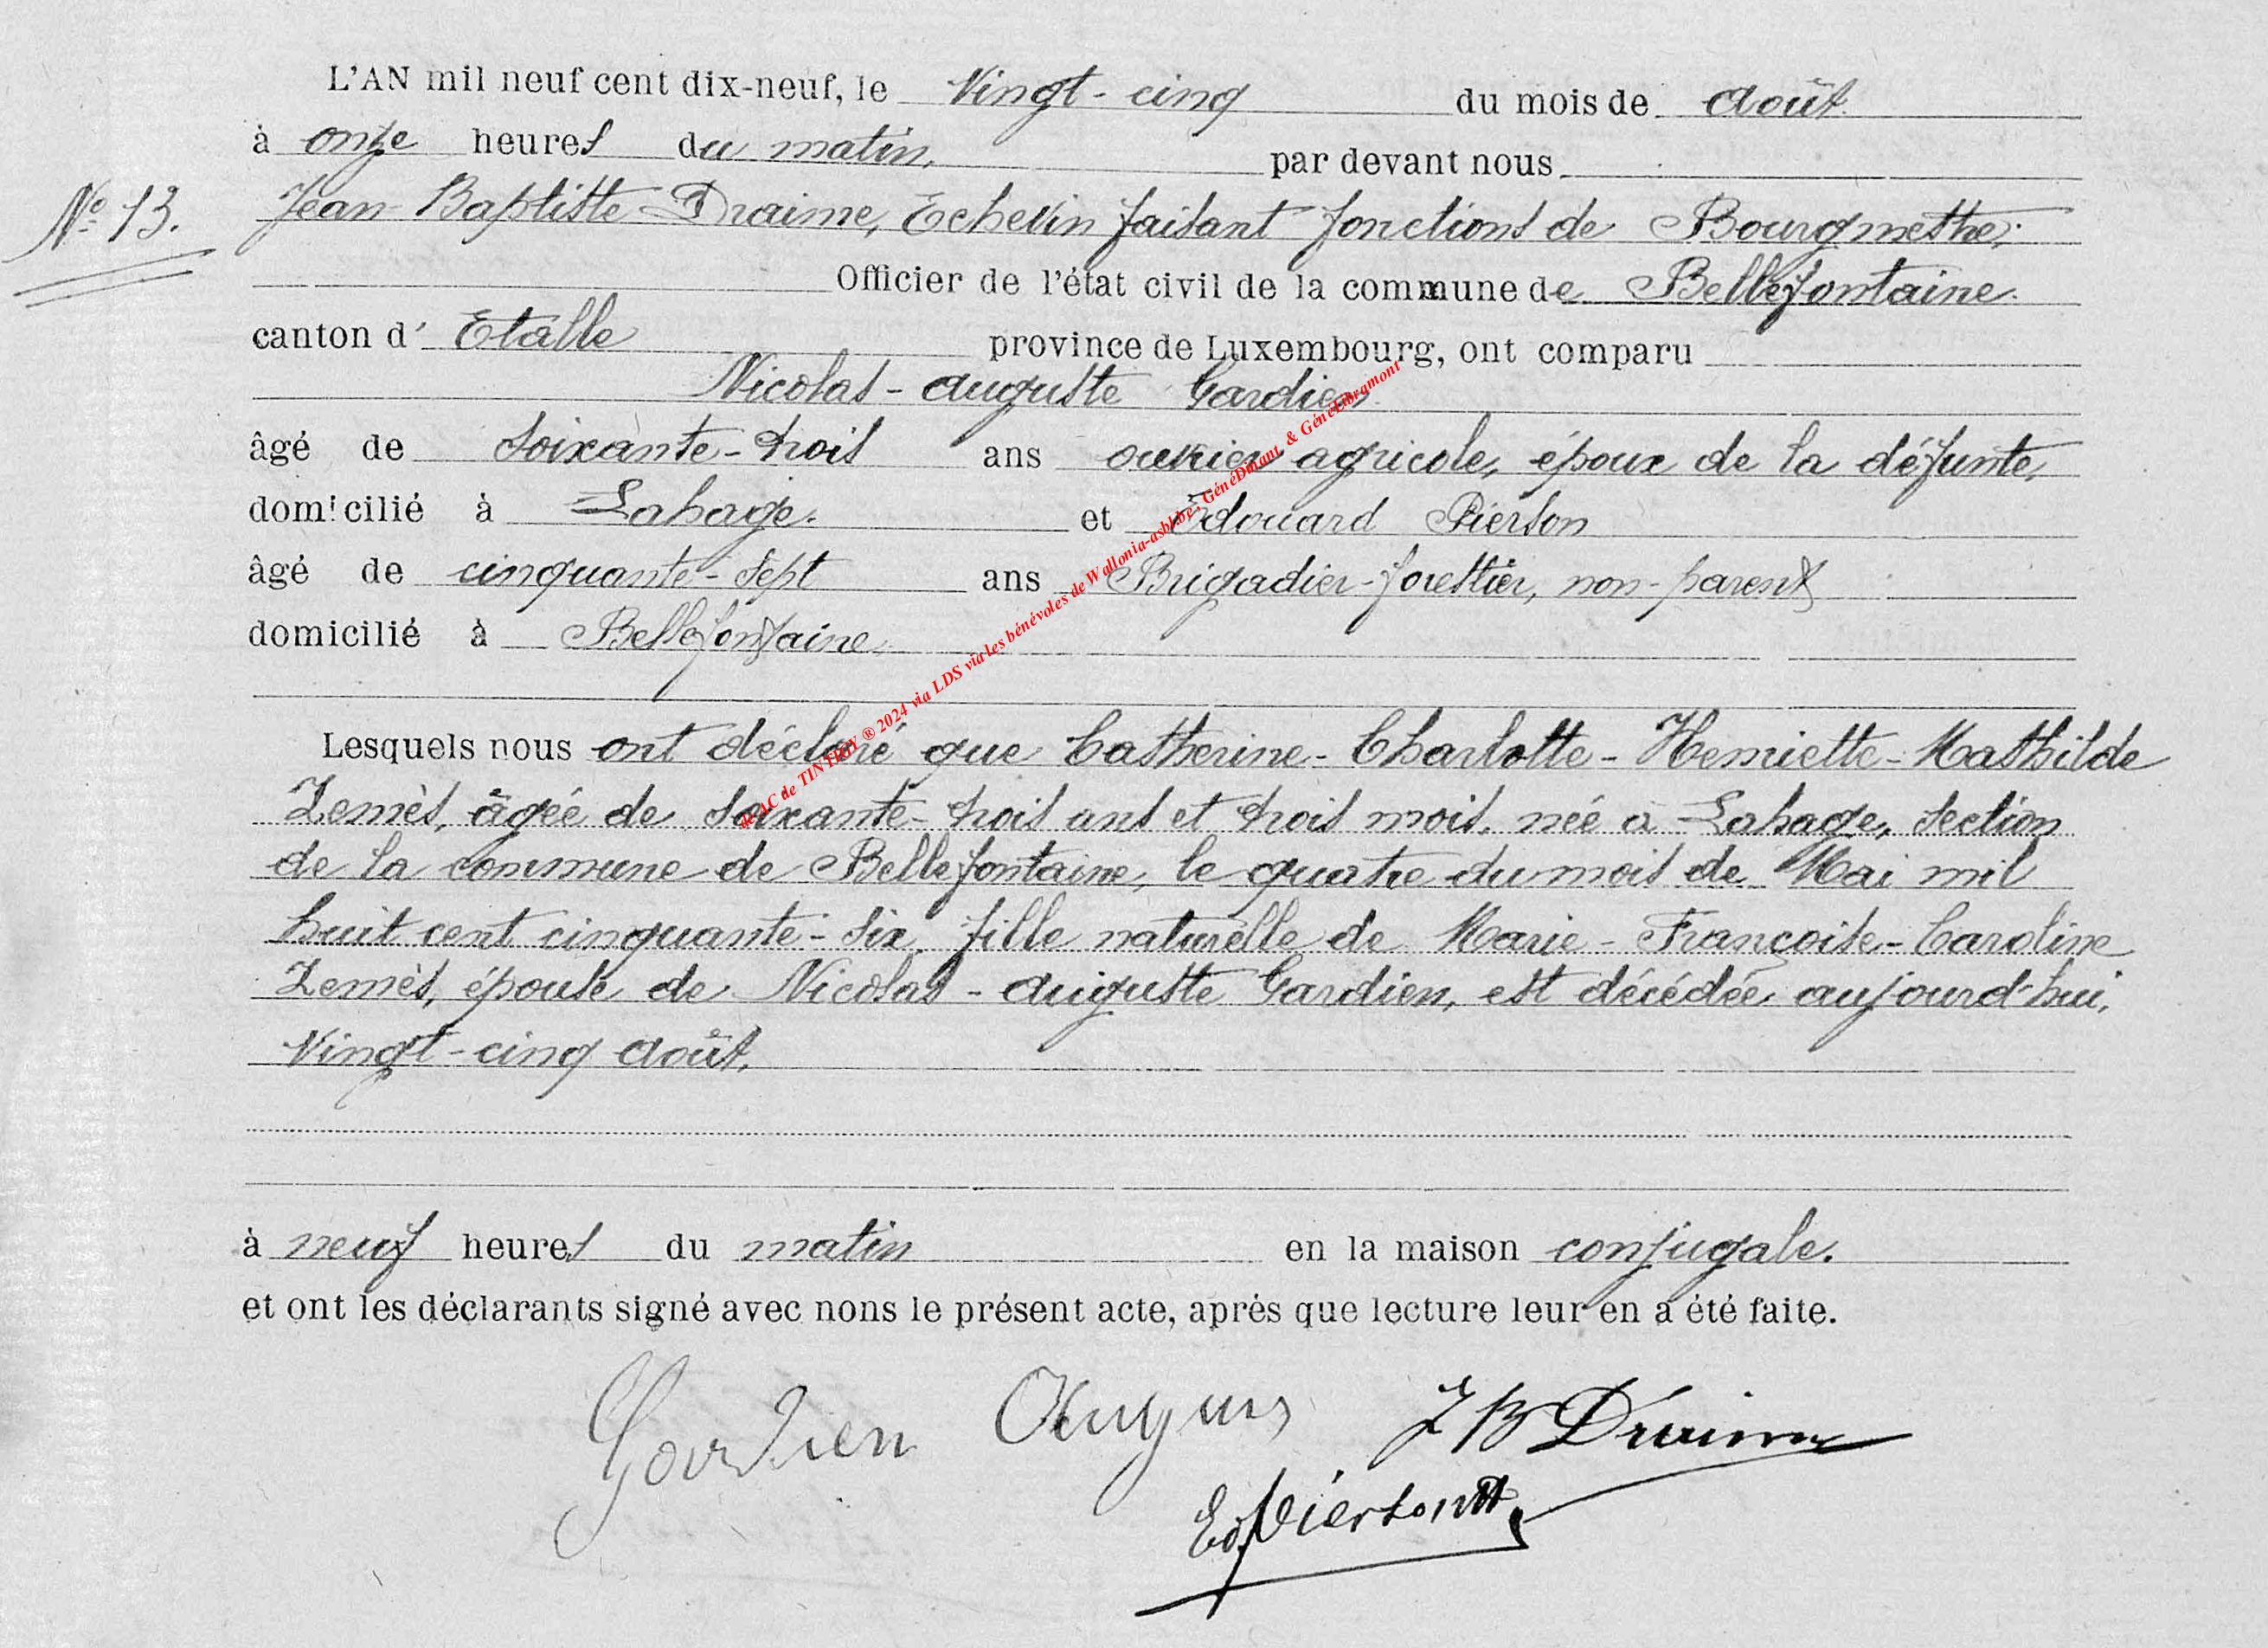 L'AN mil neuf cent dix-neuf, le Vingt-cinq du mois de Août
à onze heures du matin, par devant nous
N° 13. Jean-Baptiste Draime, Echevin faisant fonctions de Bourgmestre,
Officier de l'état civil de la commune de Bellefontaine.
canton d' Etalle province de Luxembourg, ont comparu
Nicolas-Auguste Gardien
âgé de soixante-trois ans ouvrier agricole, époux de la défunte,
domicilié à Lahage. et Edouard Pierson
âgé de cinquante-sept ans Brigadier-forestier, non-parent
domicilié à Bellefontaine.
Lesquels nous ont déclaré que Catherine-Charlotte-Henriette-Mathilde
Zemès, âgée de soixante-trois ans et trois mois, née à Lahage, section
de la commune de Bellefontaine, le quatre du mois de Mai mil
huit cent cinquante-six, fille naturelle de Marie-Françoise-Caroline
Zemès, épouse de Nicolas-Auguste Gardien, est décédée aujourd'hui,
Vingt-cinq Août,
à neuf heures du matin en la maison conjugale.
et ont les déclarants signé avec nons le présent acte, après que lecture leur en a été faite.
Gardien Augus JB Draime
Ed Pierson
de AC de TINTIGNY ® 2024 via LDS via les bénévoles de Wallonia-asbl.be, GénéDinant & GénéLibramont